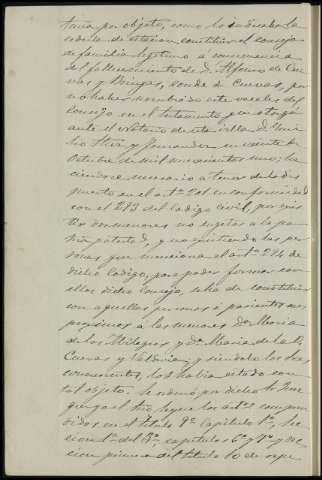 tenia por objeto, como lo indicaba la
cedula de citacion constituir el consejo
de familia legitimo á consecuencia
del fallecimiento de D. Alfonso de Cue
vas y Bringas, conde de Cuevas, por
no haber nombrado este vocales del
Consejo en el testamento, que otorgó
ante el notario de esta villa D. Emi
lio en veinte de
Octubre de mil novecientos uno; ha
ciendose necesario a tenor de lo dis
puesto en el artº 201 en conformidad
con el 293 del Codigo civil, por exis
tir dos menores no sujetas á la pa
tria potestad, y no existiendo las per
sonas que menciona el artº 294 de
dicho Codigo, para poder formar con
ellas dicho Consejo, se ha de constituir
con aquellas personas o parientes mas
proximos á las menores Dª Maria
de los Milagros y Dª Maria de la
Cuevas y Valdivia, y siendolo los los
concurrentes, los habia citado con
tal objeto. Se ordenó por dicho Sr Juez
que yo el Srio leyera los artºs compren
didos en el titulo 9º Capitulo 1º, Sec
cion 1ª del 3º, capitulos 6º y 7º y sec
cion primera del titulo 10 de repe